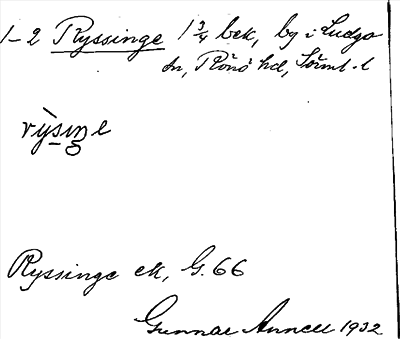 1-2 Ryssinge 1 3/4 bek, by i Ludgo
sn, Rönö hd, Södml. l
rỳsiŋe
Ryssinge ek, G. 66
Gunnar Annell 1932